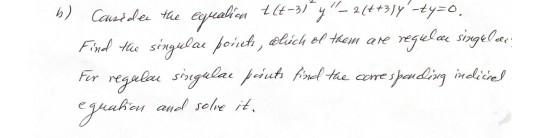 b) Consider the equation t(t-3)²y″-2(t+3)y′-ty=0.
Find the singular points, which of them are regular singular.
For regular singular points find the corresponding indicial
equation and solve it.